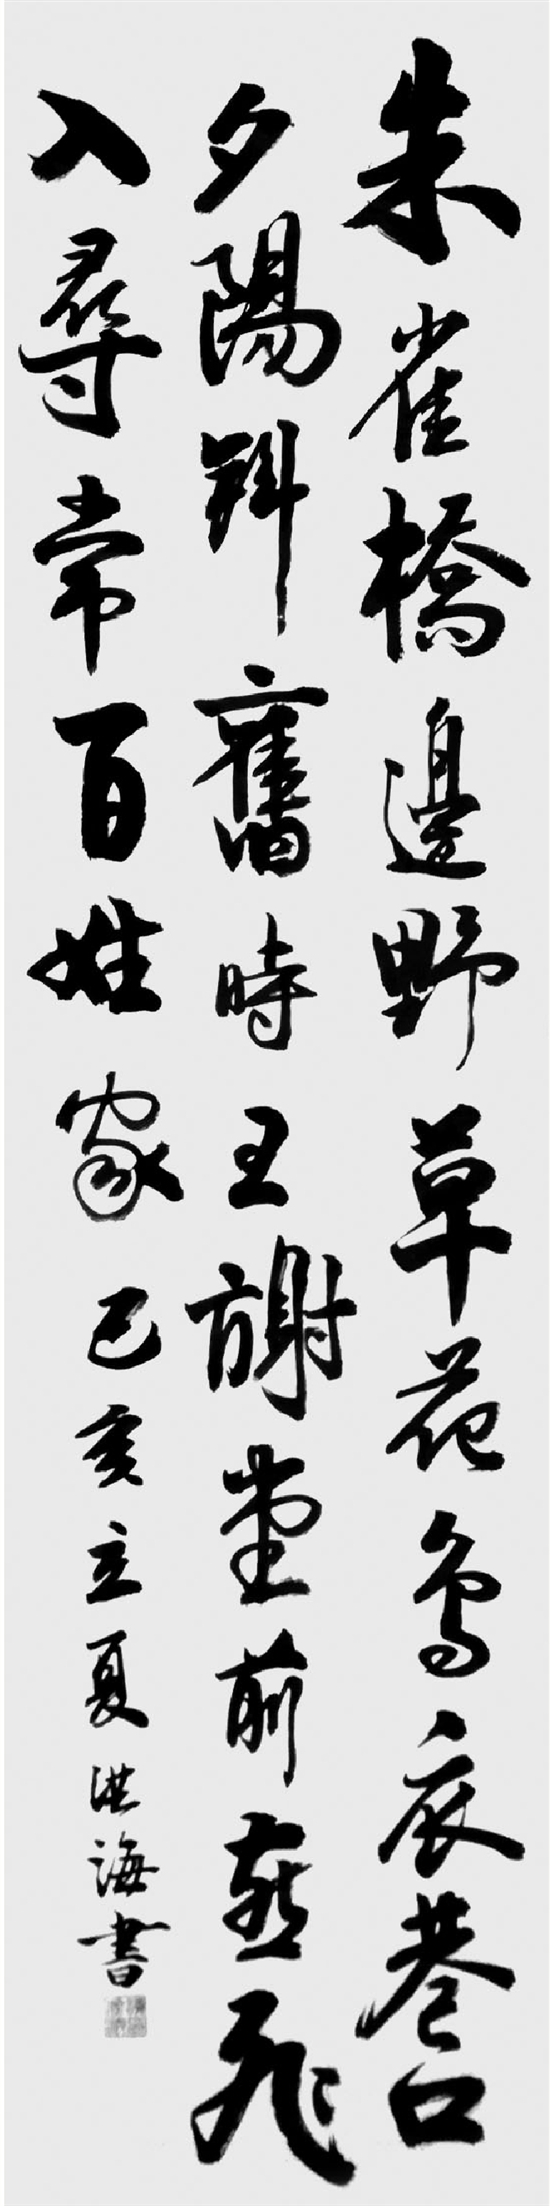 朱雀橋邊野草花烏衣巷口
夕陽斜舊時王謝堂前燕飛
入尋常百姓家己亥立夏洪海書